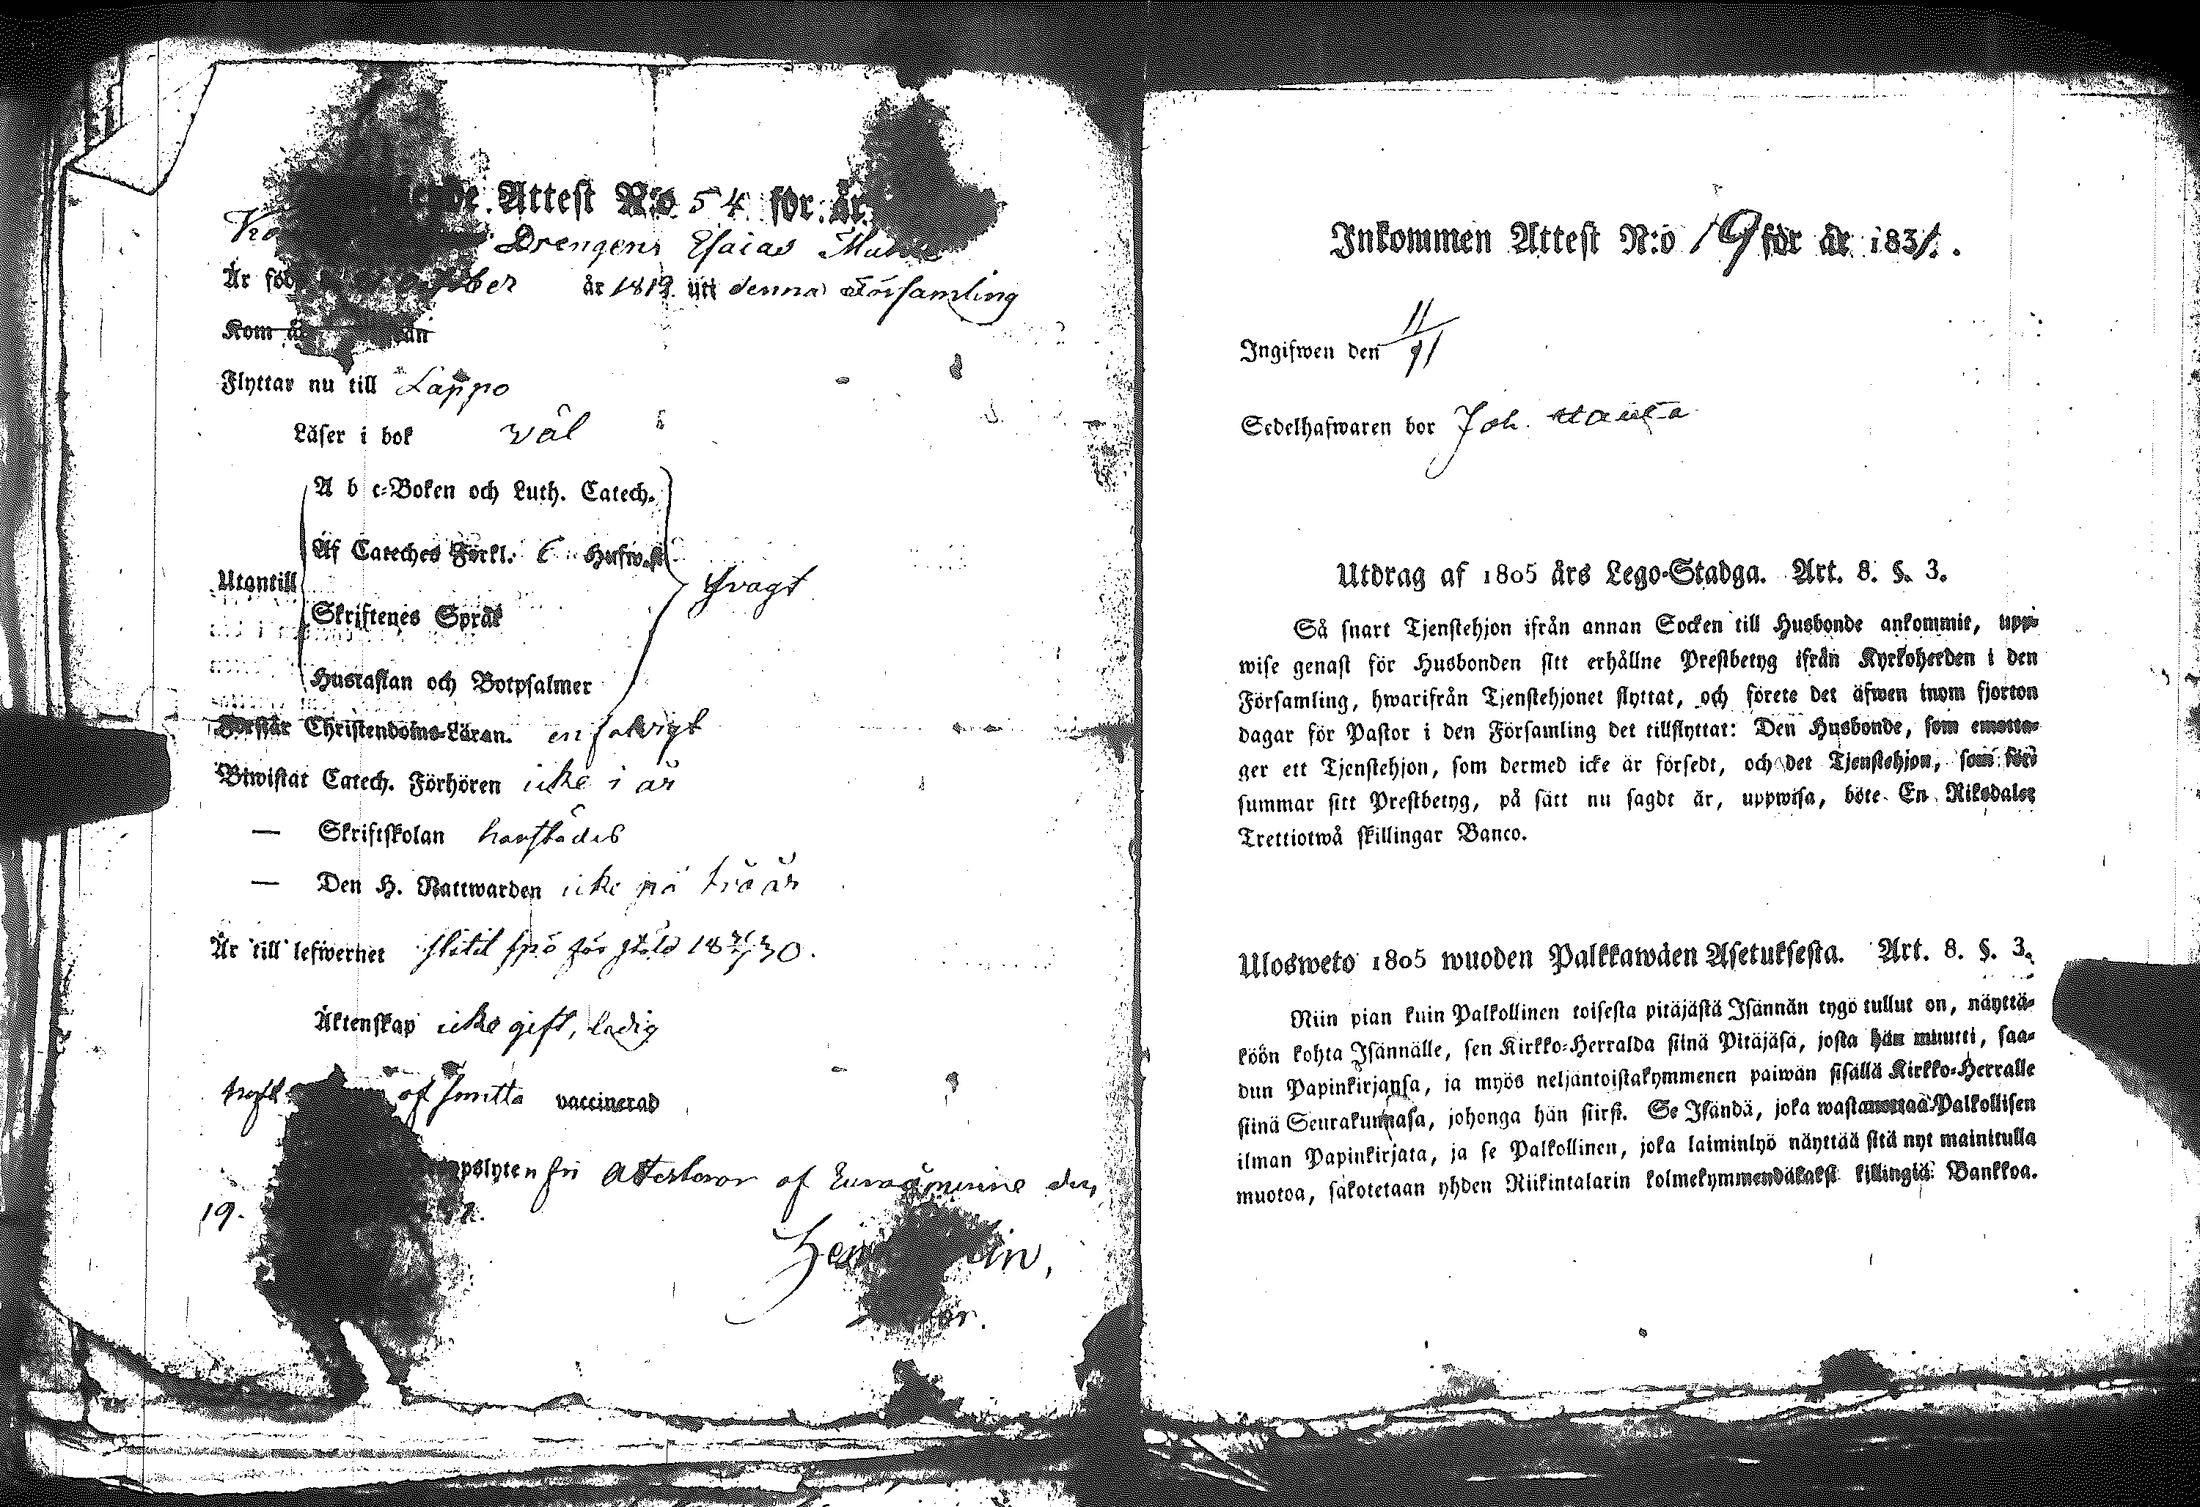 Attest N:o 54 för år
Drengen Esaias
Är född October år 1812 uti denna Församling
Kom år
Flyttar nu till Lappo
Läser i bok väl
A b c-Boken och Luth. Catech.
Af Cateches Förkl. 6 Hufw.st
Utantill
svagt
Skriftenes Språk
Hustaflan och Botpsalmer
Förstår Christendoms-Läran. enfaldigt
Biwistat Catech. Förhören icke i år
— Skriftskolan harstädes
— Den H. Nattwarden icke på två år
Är till lefwernet slitit spö för stöld 18 30.
Äktenskap icke gift, ledig
af smitta vaccinerad
fri Attesteror af Euraåminne den
19.
Inkommen Attest N:o 19 för år 1831.
Ingifwen den 11/11
Sedelhafwaren bor Joh.
Utdrag af 1805 års Lego-Stadga. Art. 8. §. 3.
Så snart Tjenstehjon ifrån annan Socken till Husbonde ankommit, upp-
wise genast för Husbonden sitt erhållne Prestbetyg ifrån Kyrkoherden i den
Församling, hwarifrån Tjenstehjonet flyttat, och förete det äfwen inom fjorton
dagar för Pastor i den Församling det tillflyttat: Den Husbonde, som emotta-
ger ett Tjenstehjon, som dermed icke är försedt, och det Tjenstehjon, som för-
summar sitt Prestbetyg, på sätt nu sagdt är, uppwisa, böte En Riksdaler
Trettiotwå skillingar Banco.
Ulosweto 1805 wuoden Palkkawäen Asetuksesta. Art. 8. §. 3.
Niin pian kuin Palkollinen toisesta pitäjästä Isännän tygö tullut on, näyttä-
köön kohta Isännälle, sen Kirkko-Herralda siinä Pitäjäsä, josta hän muutti, saa-
dun Papinkirjansa, ja myös neljäntoistakymmenen päiwän sisällä Kirkko-Herralle
siinä Seurakunnasa, johonga hän siirsi. Se Isändä, joka wastanottaa Palkollisen
ilman Papinkirjata, ja se Palkollinen, joka laiminlyö näyttää sitä nyt mainitulla
muotoa, sakotetaan yhden Riikintalarin kolmekymmendäkaksi killingiä Bankkoa.